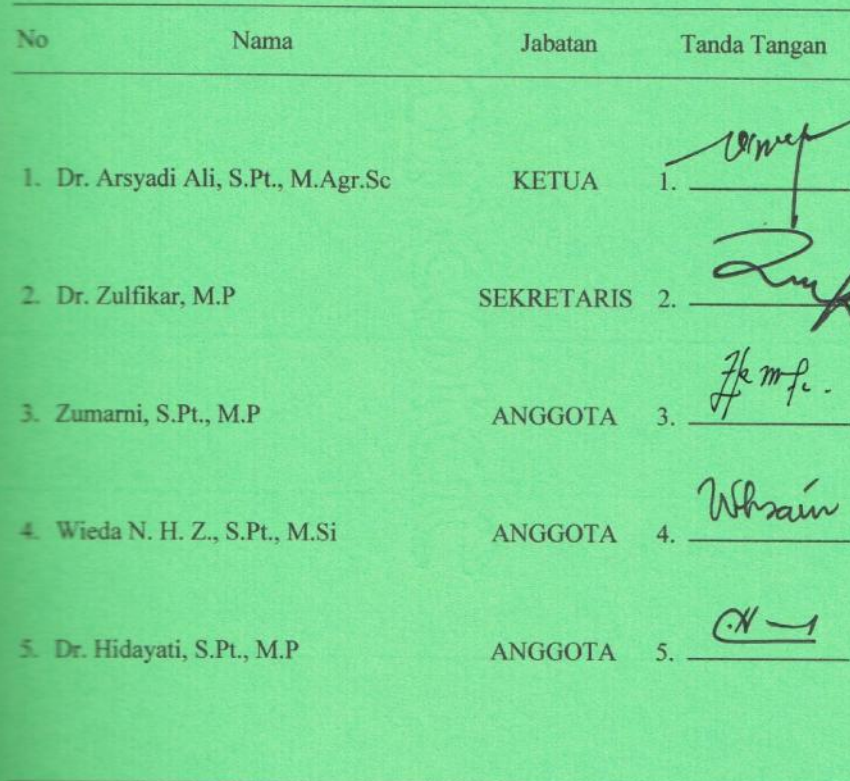 No Nama Jabatan Tanda Tangan
1. Dr. Arsyadi Ali, S.Pt., M.Agr.Sc KETUA 1.
2. Dr. Zulfikar, M.P SEKRETARIS 2.
3. Zumarni, S.Pt., M.P ANGGOTA 3.
4. Wieda N. H. Z., S.Pt., M.Si ANGGOTA 4.
5. Dr. Hidayati, S.Pt., M.P ANGGOTA 5.